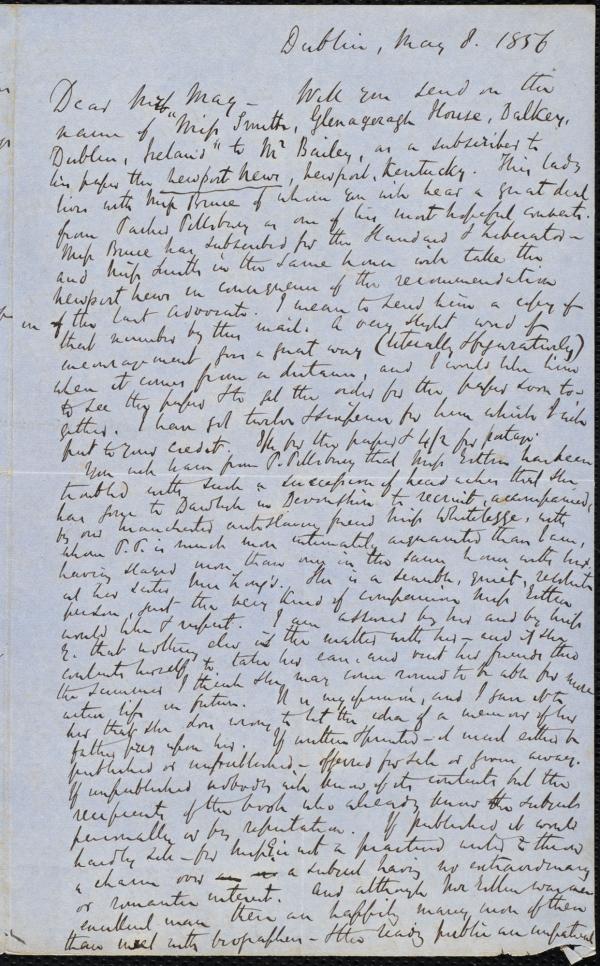 Dublin, May 8. 1856
Dear Miss May — Will you send on the
name of "Miss Smith, Glenageragh House, Dalkey,
Dublin, Ireland" to Mr Bailey, as a subscriber to
his paper the Newport News, Newport, Kentucky. This lady
lives with Miss Bruce of whom you will hear a great deal
from Parker Pillsbury as one of his most hopeful converts.
Miss Bruce has subscribed for the Standard & Liberator —
and Miss Smith in the same house will take the
Newport News in consequence of the recommendation
of the last Advocate. I mean to send him a copy of
that number by this mail. A very slight word of
encouragement goes a great way (literally & figuratively)
when it comes from a distance, and I would like him
to see the paper & to get the order for the paper soon to-
gether. I have got twelve & sixpence for him which I will
put to your credit. 8/4 for the paper & 4/2 for postage.
You will learn from P. Pillsbury that Miss Estlin has been
troubled with such a succession of headaches that she
has gone to Dawlish in Devonshire to recruit, accompanied,
by our Manchester antislavery friend Miss Whitelegge, with
whom P.P. is much more intimately acquainted than I am,
having stayed more than once in the same house with her,
at her sister Mrs Long's. She is a sensible, quiet, resolute
person, just the very kind of companion Miss Estlin
would like & respect. I am assured by her and by Miss
E. that nothing else is the matter with her — and if she
contents herself to take her ease, and visit her friends this
the summer I think she may come round to be able for more
active life in future. It is my opinion, and I gave it to
her that she does wrong to let the idea of a memoir of her
father prey upon her. If written & printed — it must either be
published or unpublished — offered for sale or given away.
If unpublished nobody will know of its contents but the
recipients of the book who already know the subject
personally or by reputation. If published it would
hardly sell — for Miss E. is not a practised writer to throw
a charm over a subject having no extraordinary
or romantic interest. And although Mr Estlin was an
excellent man there are happily many more of them
than meet with biographers — & the reading public are impatient